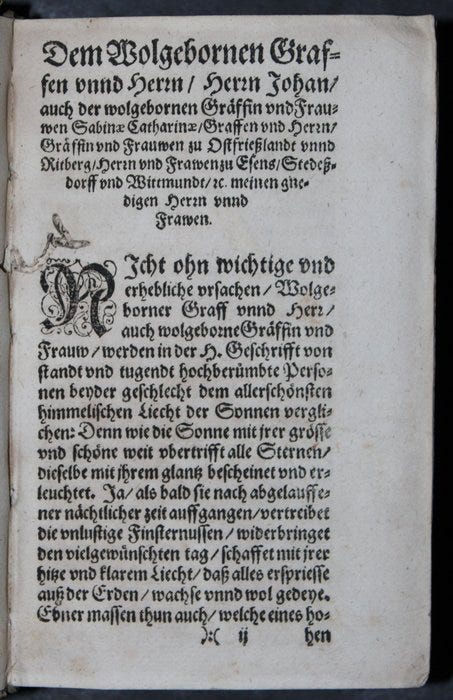 Dem Wolgebornen Graf-
fen vnnd Herrn / Herrn Johan /
auch der wolgebornen Gräffin vnd Frau-
wen Sabinæ Catharinæ / Graffen vnd Herrn /
Gräffin vnd Frauwen zu Ostfrießlandt vnnd
Ritberg / Herrn vnd Frawen zu Esens / Stedeß-
dorff vnd Wittmundt / ꝛc. meinen gne-
digen Herrn vnnd
Frawen.
NIcht ohn wichtige vnd
erhebliche vrsachen / Wolge-
borner Graff vnnd Herr /
auch wolgeborne Gräffin vnd
Frauw / werden in der H. Geschrifft von
standt vnd tugendt hochberümbte Perso-
nen beyder geschlecht dem allerschönsten
himmelischen Liecht der Sonnen vergli-
chen: Denn wie die Sonne mit jrer grösse
vnd schöne weit vbertrifft alle Sternen /
dieselbe mit jhrem glantz bescheinet vnd er-
leuchtet. Ja / als bald sie nach abgelauffe-
ner nächtlicher zeit auffgangen / vertreibet
die vnlustige Finsternussen / widerbringet
den vielgewünschten tag / schaffet mit jrer
hitze vnd klarem Liecht / daß alles erspriesse
auß der Erden / wachse vnnd wol gedeye.
Ebner massen thun auch / welche eines ho-
):( ij hen